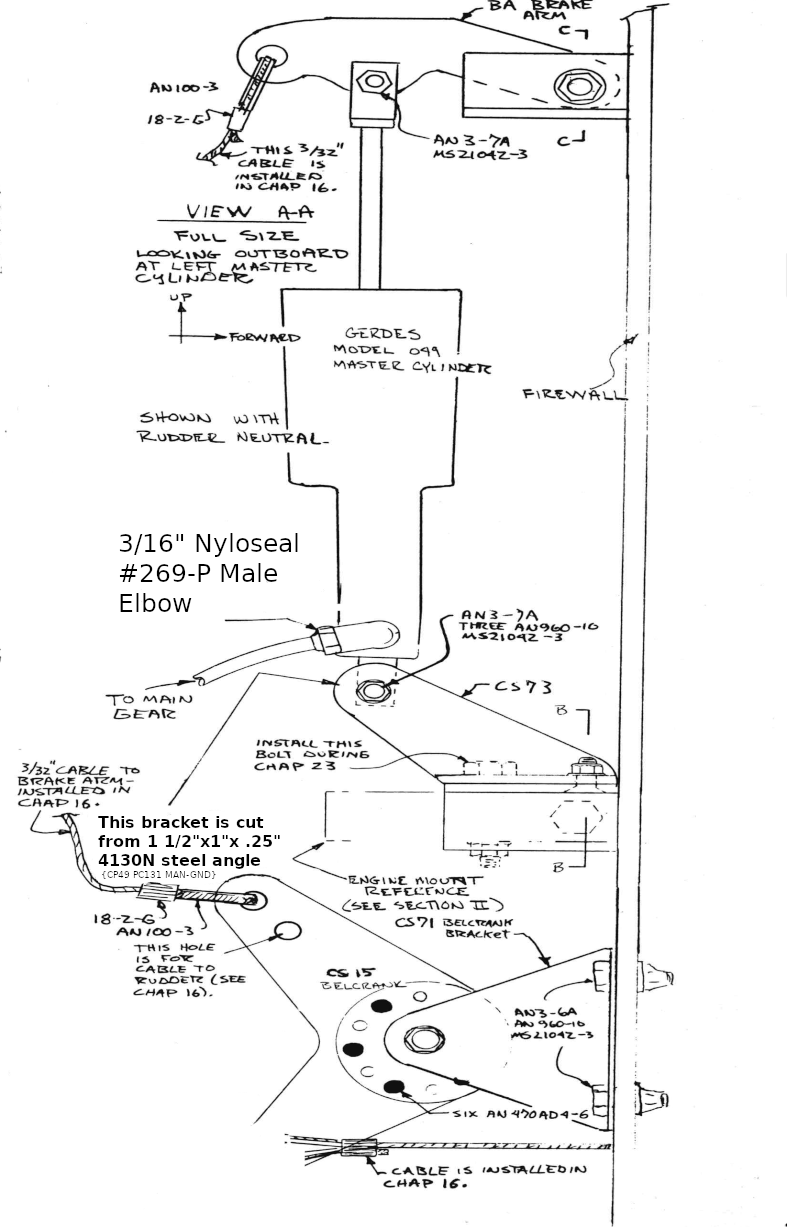 BA BRAKE
ARM
C
AN100-3
18-2-G
THIS 3/32"
CABLE IS
INSTALLED
IN CHAP 16.
AN3-7A
MS21042-3
C
VIEW A-A
FULL SIZE
LOOKING OUTBOARD
AT LEFT MASTER
CYLINDER
UP
FORWARD
GERDES
MODEL 099
MASTER CYLINDER
FIREWALL
SHOWN WITH
RUDDER NEUTRAL.
3/16" Nyloseal
#269-P Male
Elbow
AN3-7A
THREE AN960-10
MS21042-3
TO MAIN
GEAR
CS73
B
INSTALL THIS
BOLT DURING
CHAP 23
3/32" CABLE TO
BRAKE ARM-
INSTALLED IN
CHAP 16.
This bracket is cut
from 1 1/2"x1"x .25"
4130N steel angle
{CP49 PC131 MAN-GND}
B
ENGINE MOUNT
REFERENCE
(SEE SECTION II)
18-2-G
AN100-3
CS71 BELCRANK
BRACKET
THIS HOLE
IS FOR
CABLE TO
RUDDER (SEE
CHAP 16).
CS15
BELCRANK
AN3-6A
AN960-10
MS21042-3
SIX AN470AD4-6
CABLE IS INSTALLED IN
CHAP 16.